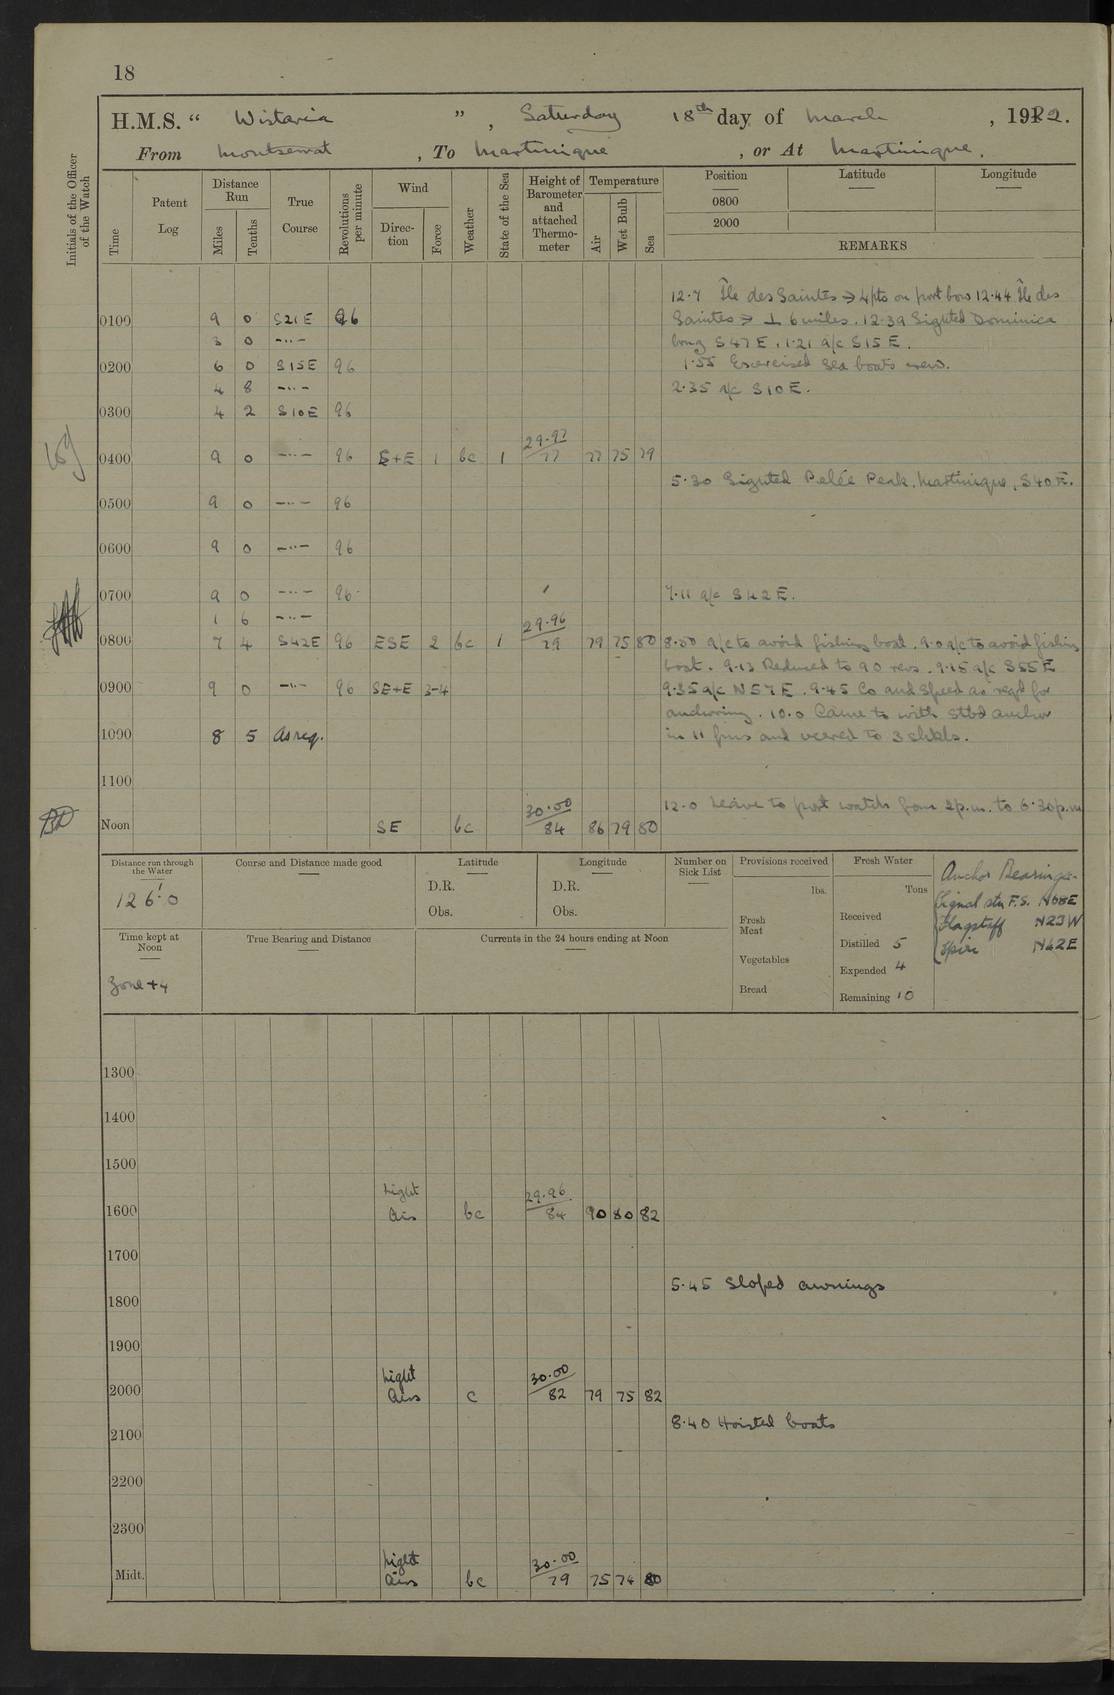 18
H.M.S. “ Wistaria ” , Saturday 18th day of March , 1922.
From Montserrat , To Martinique , or At Martinique.
Initials of the Officer of the Watch
Time
Patent Log
Distance Run
Miles
Tenths
True Course
Revolutions per minute
Wind
Direction
Force
Weather
State of the Sea
Height of Barometer and attached Thermometer
Temperature
Air
Wet Bulb
Sea
Position Latitude Longitude
0800
2000
REMARKS
12.7 Île des Saintes → 4 pts on port bow 12.44 Île des
0100 9 0 S21E 96 Saintes → ⊥ 6 miles. 12.39 Sighted Dominica
3 0 -"- brng S47E. 1.21 a/c S15E.
0200 6 0 S15E 96 1.55 Exercised Sea boats crew.
4 8 -"- 2.35 a/c S10E.
0300 4 2 S10E 96
29.97
0400 9 0 -"- 96 S+E 1 bc 1 77 77 75 79
5.30 Sighted Pelée Peak, Martinique, S40E.
0500 9 0 -"- 96
0600 9 0 -"- 96
0700 9 0 -"- 96 7.11 a/c S42E.
1 6 -"- 29.96
0800 7 4 S42E 96 ESE 2 bc 1 79 79 75 80 8.50 a/c to avoid fishing boat. 9.0 a/c to avoid fishing
boat. 9.13 Reduced to 90 revs. 9.15 a/c S55E
0900 9 0 -"- 96 SE+E 3-4 9.35 a/c N57E. 9.45 Co and Speed as reqd for
anchoring. 10.0 Came to with stbd anchor
1000 8 5 As req. in 11 fms and veered to 3 shkls.
1100
30.00 12.0 Leave to port watch from 2 p.m. to 6.30 p.m.
Noon SE bc 84 86 79 80
Distance run through the Water
126.0
Course and Distance made good
Latitude
D.R.
Obs.
Longitude
D.R.
Obs.
Number on Sick List
Provisions received
lbs.
Fresh Meat
Vegetables
Bread
Fresh Water
Tons
Received
Distilled 5
Expended 4
Remaining 10
Anchor Bearings-
Signal stn F.S. N68E
Flagstaff N23W
Spire N62E
Time kept at Noon
Zone +4
True Bearing and Distance
Currents in the 24 hours ending at Noon
1300
1400
1500
Light 29.96
1600 Airs bc 84 90 80 82
1700
5.45 Sloped awnings
1800
1900
Light 30.00
2000 Airs c 82 79 75 82
8.40 Hoisted boats
2100
2200
2300
Light 30.00
Midt. Airs bc 79 75 74 80